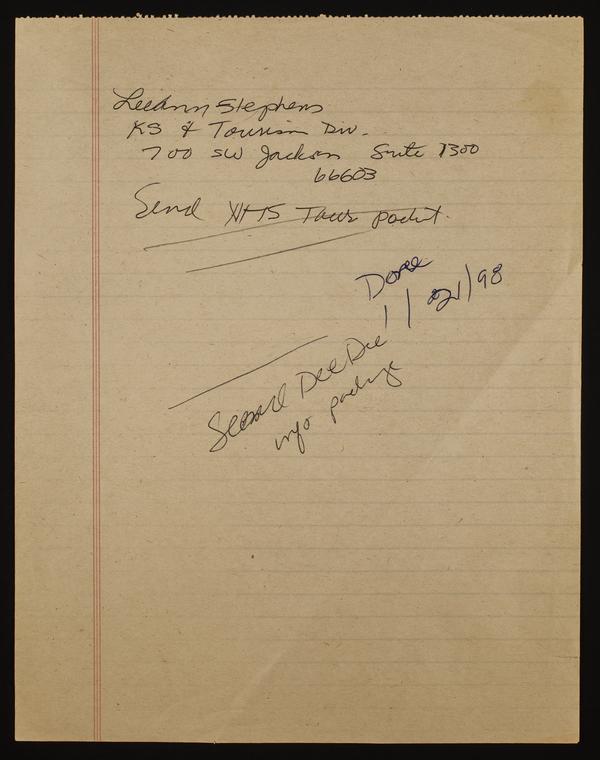 LeeAnn Stephens
KS & Tourism Div.
700 SW Jackson Suite 1300
66603
Send Tour packet.
Done
1/21/98
Second Dee Dee
info package